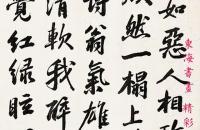 如惡人相
然一榻上
翁氣雄
軟我醉
覺紅緑眩
東海書畫 精彩